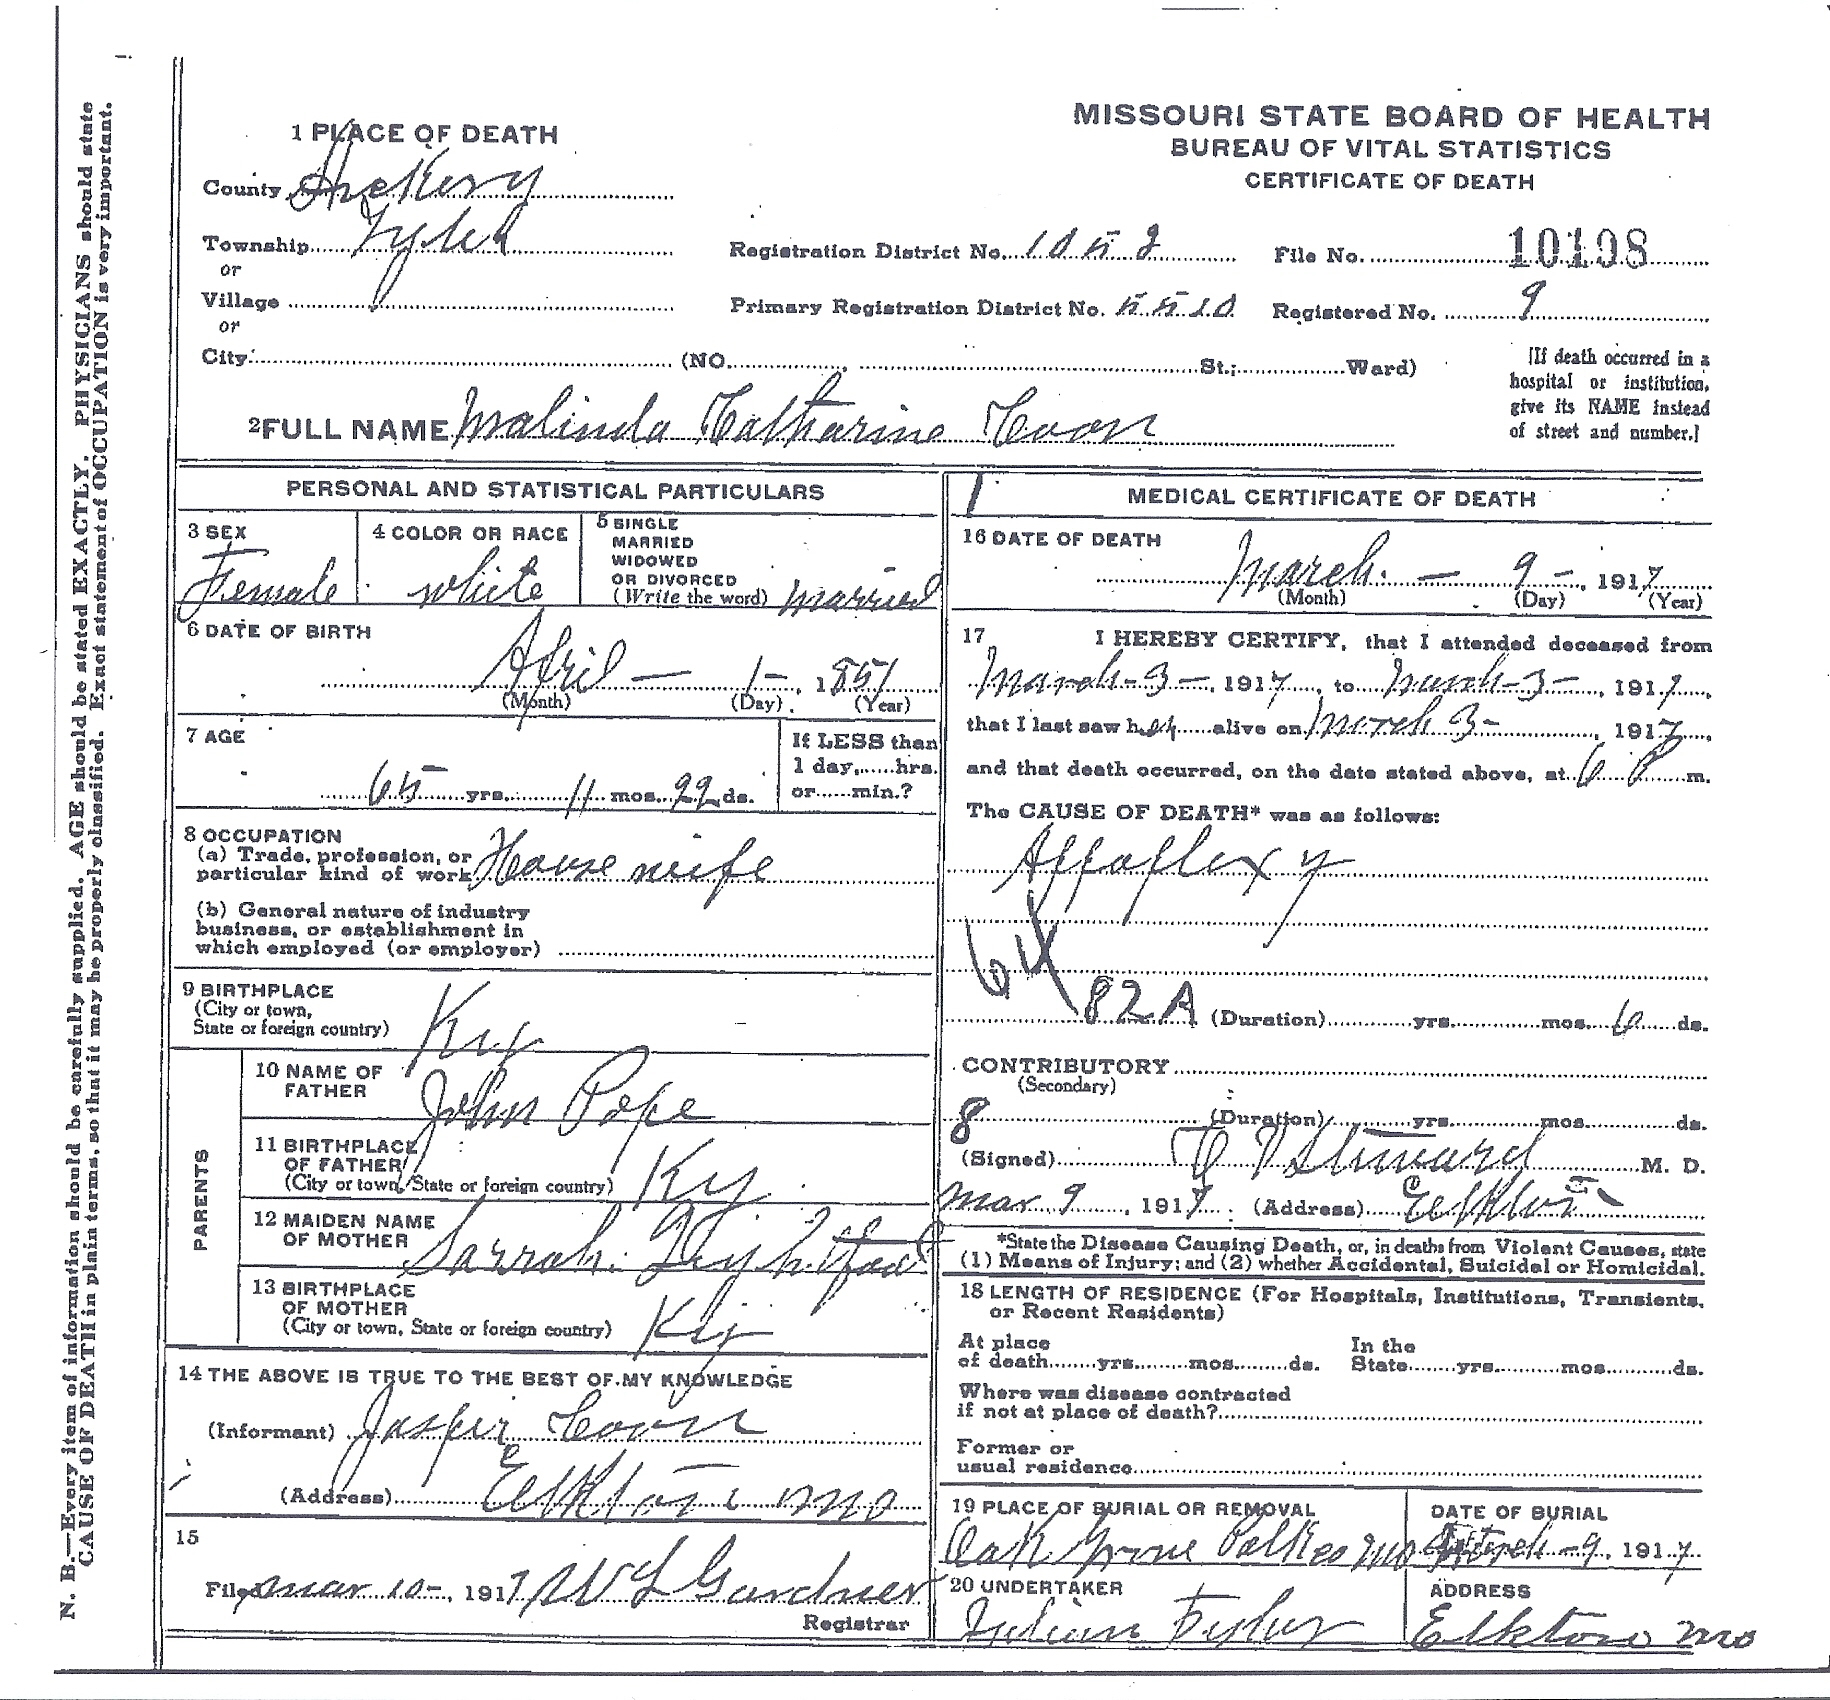 MISSOURI STATE BOARD OF HEALTH
BUREAU OF VITAL STATISTICS
CERTIFICATE OF DEATH
1 PLACE OF DEATH
County Hickory
Township Tyler
or
Village
or
City (NO. St.; Ward)
Registration District No. 1052 File No. 10198
Primary Registration District No. 5510 Registered No. 9
[If death occurred in a
hospital or institution,
give its NAME instead
of street and number.]
2 FULL NAME Malinda Catharine Coon
PERSONAL AND STATISTICAL PARTICULARS
3 SEX
Female
4 COLOR OR RACE
white
5 SINGLE
MARRIED
WIDOWED
OR DIVORCED
(Write the word) married
6 DATE OF BIRTH
April — 1 —, 1851
(Month) (Day) (Year)
7 AGE
65 yrs. 11 mos. 22 ds.
If LESS than
1 day, hrs.
or min.?
8 OCCUPATION
(a) Trade, profession, or
particular kind of work House wife
(b) General nature of industry
business, or establishment in
which employed (or employer)
9 BIRTHPLACE
(City or town,
State or foreign country) Ky
PARENTS
10 NAME OF
FATHER John Pope
11 BIRTHPLACE
OF FATHER
(City or town, State or foreign country) Ky.
12 MAIDEN NAME
OF MOTHER Sarrah
13 BIRTHPLACE
OF MOTHER
(City or town, State or foreign country) Ky
14 THE ABOVE IS TRUE TO THE BEST OF MY KNOWLEDGE
(Informant) Jasper Coon
(Address) Elkton mo
15
Filed mar 10-, 1917 W L Gardner
Registrar
MEDICAL CERTIFICATE OF DEATH
16 DATE OF DEATH
March — 9 —, 1917
(Month) (Day) (Year)
17 I HEREBY CERTIFY, that I attended deceased from
March-3-, 1917, to March-3-, 1917,
that I last saw her alive on March 3-, 1917,
and that death occurred, on the date stated above, at 6 P m.
The CAUSE OF DEATH* was as follows:
Appoplexy
64
82A (Duration) yrs. mos. 6 ds.
CONTRIBUTORY
(Secondary)
8 (Duration) yrs. mos. ds.
(Signed) M. D.
Mar 9, 1917 (Address) Elkton
*State the Disease Causing Death, or, in deaths from Violent Causes, state
(1) Means of Injury; and (2) whether Accidental, Suicidal or Homicidal.
18 LENGTH OF RESIDENCE (For Hospitals, Institutions, Transients,
or Recent Residents)
At place
of death yrs. mos. ds.
In the
State yrs. mos. ds.
Where was disease contracted
if not at place of death?
Former or
usual residence
19 PLACE OF BURIAL OR REMOVAL
Oak Grove Polk co mo
DATE OF BURIAL
March -9, 1917
20 UNDERTAKER
Julian
ADDRESS
Elkton mo
N. B.—Every item of information should be carefully supplied. AGE should be stated EXACTLY. PHYSICIANS should state
CAUSE OF DEATH in plain terms, so that it may be properly classified. Exact statement of OCCUPATION is very important.